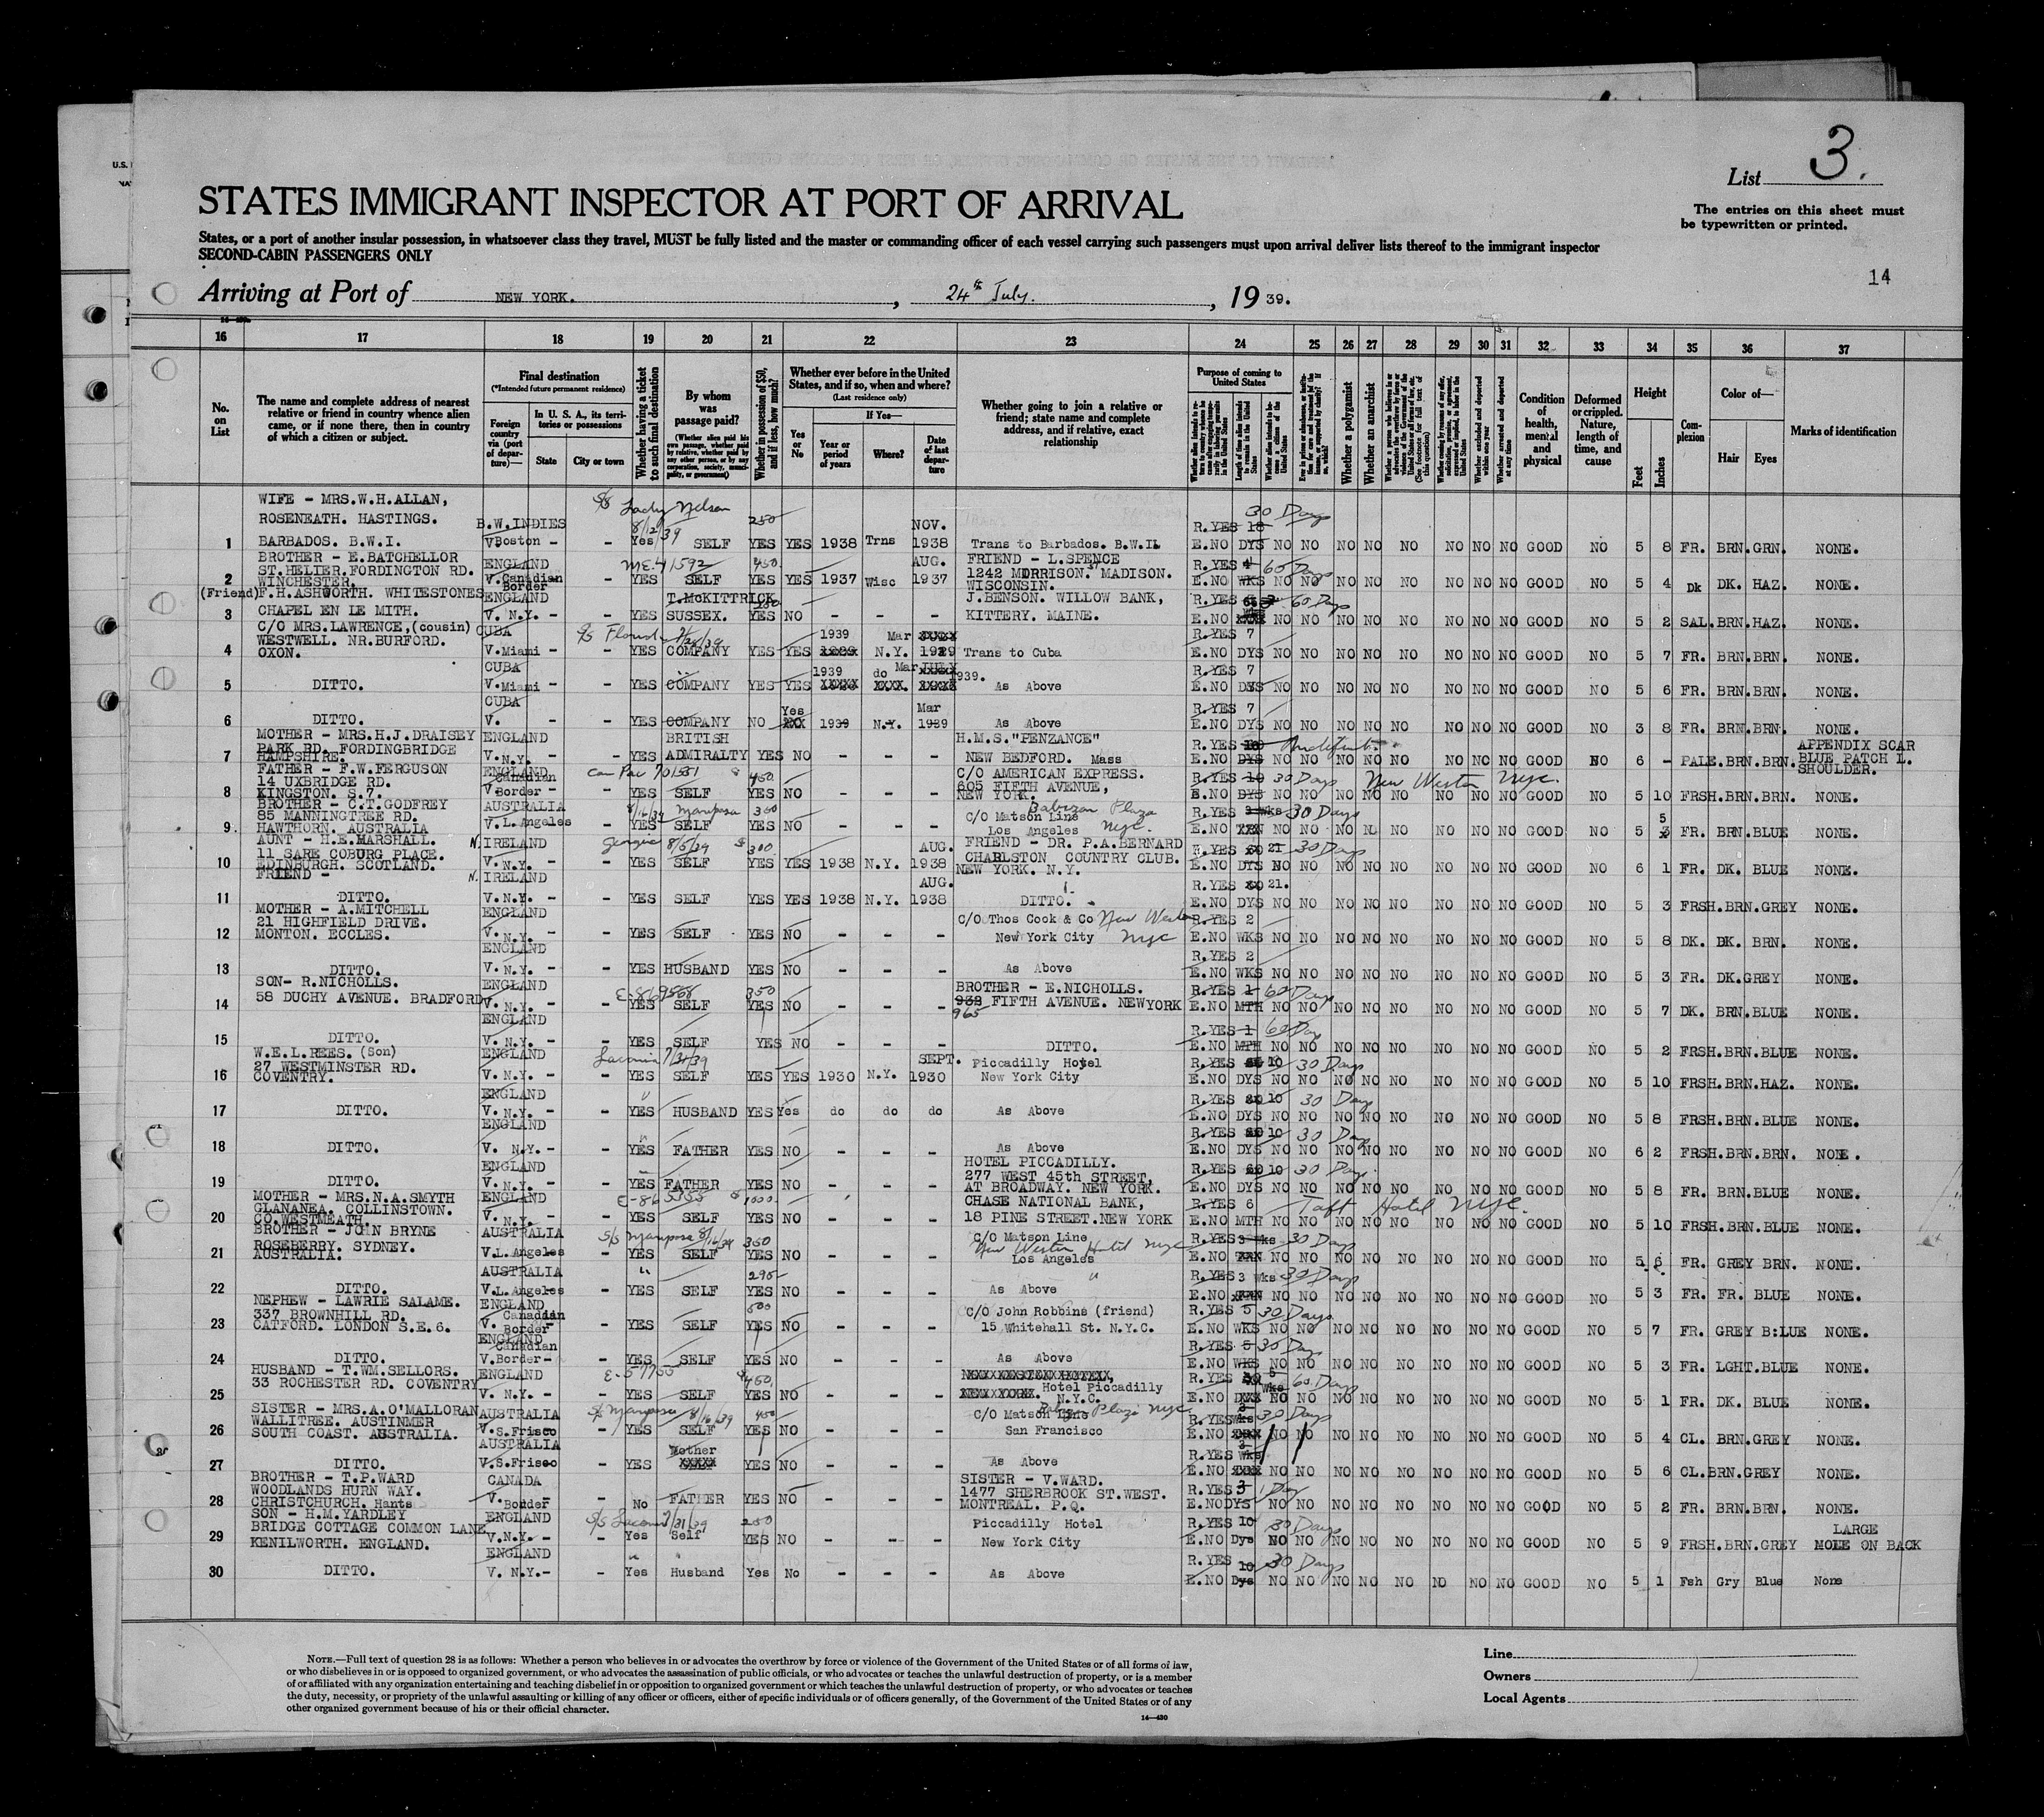 U.S.
List 3.
STATES IMMIGRANT INSPECTOR AT PORT OF ARRIVAL
The entries on this sheet must
be typewritten or printed.
States, or a port of another insular possession, in whatsoever class they travel, MUST be fully listed and the master or commanding officer of each vessel carrying such passengers must upon arrival deliver lists thereof to the immigrant inspector
SECOND-CABIN PASSENGERS ONLY
14
Arriving at Port of NEW YORK. , 24th July. , 19 39.
16 17 18 19 20 21 22 23 24 25 26 27 28 29 30 31 32 33 34 35 36 37
No. on List
The name and complete address of nearest relative or friend in country whence alien came, or if none there, then in country of which a citizen or subject.
Final destination
(*Intended future permanent residence)
Foreign country via (port of departure)—
In U. S. A., its territories or possessions
State
City or town
Whether having a ticket to such final destination
By whom was passage paid?
(Whether alien paid his own passage, whether paid by relative, whether paid by any other person, or by any corporation, society, municipality, or government)
Whether in possession of $50, and if less, how much?
Whether ever before in the United States, and if so, when and where?
(Last residence only)
Yes or No
If Yes—
Year or period of years
Where?
Date of last departure
Whether going to join a relative or friend; state name and complete address, and if relative, exact relationship
Purpose of coming to United States
Whether a polygamist
Whether an anarchist
Whether excluded and deported within one year
Whether arrested and deported at any time
Condition of health, mental and physical
Deformed or crippled. Nature, length of time, and cause
Height
Feet
Inches
Complexion
Color of—
Hair
Eyes
Marks of identification
WIFE - MRS.W.H.ALLAN,
ROSENEATH. HASTINGS. B.W.INDIES S/S Lady Nelson 8/12/39 250 NOV. 30 Days R.YES 18
1 BARBADOS. B.W.I. V Boston - - Yes SELF YES YES 1938 Trns 1938 Trans to Barbados. B.W.I. E.NO DYS NO NO NO NO NO NO NO NO GOOD NO 5 8 FR. BRN.GRN. NONE.
BROTHER - E.BATCHELLOR ENGLAND 450 AUG. FRIEND - L.SPENCE
ST.HELIER.FORDINGTON RD. 1242 MORRISON. MADISON. R.YES 4 60 Days
2 WINCHESTER. V.Canadian Border - YES SELF YES YES 1937 Wisc 1937 WISCONSIN. E.NO WKS NO NO NO NO NO NO NO NO GOOD NO 5 4 Dk DK. HAZ. NONE.
(Friend)F.H.ASHWORTH. WHITESTONES ENGLAND T.McKITTRICK J.BENSON. WILLOW BANK, R.YES 60 Days
3 CHAPEL EN LE MITH. V. N.Y. - YES SUSSEX. YES NO - - - KITTERY. MAINE. E.NO NO NO NO NO NO NO NO NO GOOD NO 5 2 SAL.BRN.HAZ. NONE.
C/O MRS.LAWRENCE,(cousin) CUBA
WESTWELL. NR.BURFORD. 1939 Mar R.YES 7
4 OXON. V.Miami - - YES COMPANY YES YES N.Y. Trans to Cuba E.NO DYS NO NO NO NO NO NO NO NO GOOD NO 5 7 FR. BRN.BRN. NONE.
CUBA 1939 do Mar 1939. R.YES 7
5 DITTO. V.Miami - - YES COMPANY YES YES As Above E.NO DYS NO NO NO NO NO NO NO NO GOOD NO 5 6 FR. BRN.BRN. NONE.
CUBA Yes Mar R.YES 7
6 DITTO. V. - - YES COMPANY NO 1939 N.Y. 1939 As Above E.NO DYS NO NO NO NO NO NO NO NO GOOD NO 3 8 FR. BRN.BRN. NONE.
MOTHER - MRS.H.J.DRAISEY ENGLAND BRITISH H.M.S."PENZANCE" R.YES APPENDIX SCAR
PARK RD. FORDINGBRIDGE
7 HAMPSHIRE. V.N.Y. - YES ADMIRALTY YES NO - - - NEW BEDFORD. Mass E.NO DYS NO NO NO NO NO NO NO NO GOOD NO 6 - PALE.BRN.BRN. BLUE PATCH L. SHOULDER.
FATHER - F.W.FERGUSON ENGLAND Can Pac 701551 450 C/O AMERICAN EXPRESS.
14 UXBRIDGE RD. 605 FIFTH AVENUE, R.YES 10 30 Days New Weston NYC.
8 KINGSTON. S.7. V Canadian Border - - YES SELF YES NO - - - NEW YORK. E.NO DYS NO NO NO NO NO NO NO NO GOOD NO 5 10 FRSH.BRN.BRN. NONE.
BROTHER - C.T.GODFREY AUSTRALIA Mariposa 350 Barbizon Plaza
85 MANNINGTREE RD. C/O Matson Line NYC. R.YES 3 wks 30 Days
9 HAWTHORN. AUSTRALIA V.L.Angeles - YES SELF YES NO - - - Los Angeles E.NO NO NO NO NO NO NO NO GOOD NO 5 FR. BRN.BLUE NONE.
AUNT - H.E.MARSHALL. N.IRELAND Georgic 8/5/39 $300 AUG. FRIEND - DR. P.A.BERNARD
11 SARK COBURG PLACE. CHARLSTON COUNTRY CLUB. R.YES 21 30 Days
10 EDINBURGH. SCOTLAND. V.N.Y. - - YES SELF YES YES 1938 N.Y. 1938 NEW YORK. N.Y. E.NO DYS NO NO NO NO NO NO NO GOOD NO 6 1 FR. DK. BLUE NONE.
FRIEND - N.IRELAND AUG. R.YES 21.
11 DITTO. V.N.Y. - - YES SELF YES YES 1938 N.Y. 1938 DITTO. E.NO DYS NO NO NO NO NO NO NO NO GOOD NO 5 3 FRSH.BRN.GREY NONE.
MOTHER - A.MITCHELL ENGLAND
21 HIGHFIELD DRIVE. C/O Thos Cook & Co New Weston R.YES 2
12 MONTON. ECCLES. V. N.Y. - - YES SELF YES NO - - - New York City NYC E.NO WKS NO NO NO NO NO NO NO NO GOOD NO 5 8 DK. DK. BRN. NONE.
ENGLAND R.YES 2
13 DITTO. V. N.Y. - - YES HUSBAND YES NO - - - As Above E.NO WKS NO NO NO NO NO NO NO NO GOOD NO 5 3 FR. DK.GREY NONE.
SON- R.NICHOLLS. ENGLAND 350 BROTHER - E.NICHOLLS. R.YES 1 60 Days
14 58 DUCHY AVENUE. BRADFORD V. N.Y. - - YES SELF YES NO - - - 938 965 FIFTH AVENUE. NEWYORK E.NO MTH NO NO NO NO NO NO NO NO GOOD NO 5 7 DK. BRN.BLUE NONE.
ENGLAND R.YES 1 60 Days
15 DITTO. V. N.Y. - - YES SELF YES NO - - - DITTO. E.NO MTH NO NO NO NO NO NO NO NO GOOD NO 5 2 FRSH.BRN.BLUE NONE.
W.E.L.REES. (Son) ENGLAND Laconia 7/31/39 SEPT. Piccadilly Hotel R.YES 10 30 Days
27 WESTMINSTER RD.
16 COVENTRY. V. N.Y. - - YES SELF YES YES 1930 N.Y. 1930 New York City E.NO DYS NO NO NO NO NO NO NO NO GOOD NO 5 10 FRSH.BRN.HAZ. NONE.
ENGLAND R.YES 10 30 Days
17 DITTO. V. N.Y. - - YES HUSBAND YES Yes do do do As Above E.NO DYS NO NO NO NO NO NO NO NO GOOD NO 5 8 FRSH.BRN.BLUE NONE.
ENGLAND R.YES 10 30 Days
18 DITTO. V. N.Y. - - YES FATHER YES NO - - - As Above E.NO DYS NO NO NO NO NO NO NO NO GOOD NO 6 2 FRSH.BRN.BRN. NONE.
ENGLAND HOTEL PICCADILLY. R.YES 10 30 Days.
277 WEST 45th STREET,
19 DITTO. V. N.Y. - - YES FATHER YES NO - - - AT BROADWAY. NEW YORK. E.NO DYS NO NO NO NO NO NO NO NO GOOD NO 5 8 FR. BRN.BLUE NONE.
MOTHER - MRS.N.A.SMYTH ENGLAND E-865355 $1000 CHASE NATIONAL BANK, R.YES 6 Taft Hotel NYC.
GLANANEA. COLLINSTOWN.
20 CO.WESTMEATH. V. N.Y. - - YES SELF YES NO - - - 18 PINE STREET.NEW YORK E.NO MTH NO NO NO NO NO NO NO NO GOOD NO 5 10 FRSH.BRN.BLUE NONE.
BROTHER - JOHN BRYNE AUSTRALIA S/S Mariposa 8/16/39 350 C/O Matson Line R.YES 3 wks 30 Days
ROSEBERRY. SYDNEY. New Weston Hotel NYC
21 AUSTRALIA. V.L.Angeles - YES SELF YES NO - - - Los Angeles E.NO NO NO NO NO NO NO NO NO GOOD NO 5 6 FR. GREY BRN. NONE.
AUSTRALIA " 295 " R.YES 3 Wks 30 Days
22 DITTO. V.L.Angeles - YES SELF YES NO - - - As Above E.NO NO NO NO NO NO NO NO NO GOOD NO 5 3 FR. FR. BLUE NONE.
NEPHEW - LAWRIE SALAME. ENGLAND 500 C/O John Robbins (friend) R.YES 5 30 Days
337 BROWNHILL RD.
23 CATFORD. LONDON S.E.6. V. Canadian Border - YES SELF YES NO - - - 15 Whitehall St. N.Y.C. E.NO WKS NO NO NO NO NO NO NO NO GOOD NO 5 7 FR. GREY B:LUE NONE.
ENGLAND R.YES 5 30 Days
24 DITTO. V. Canadian Border - - YES SELF YES NO - - - As Above E.NO WKS NO NO NO NO NO NO NO NO GOOD NO 5 3 FR. LGHT.BLUE NONE.
HUSBAND - T.WM.SELLORS. ENGLAND $450 R.YES 5 Wks 60 Days
25 33 ROCHESTER RD. COVENTRY V. N.Y. - - YES SELF YES NO - - - Hotel Piccadilly N.Y.C. E.NO NO NO NO NO NO NO NO NO GOOD NO 5 1 FR. DK. BLUE NONE.
SISTER - MRS.A.O'MALLORAN AUSTRALIA S/S Mariposa 8/16/39 450 C/O Matson Line Plaza NYC R.YES 3 wks 30 Days
WALLITREE. AUSTINMER
26 SOUTH COAST. AUSTRALIA. V.S.Frisco - YES SELF YES NO - - - San Francisco E.NO NO NO NO NO NO NO NO NO GOOD NO 5 4 CL. BRN.GREY NONE.
AUSTRALIA Mother R.YES 3 Wks
27 DITTO. V.S.Frisco - YES YES NO - - - As Above E.NO NO NO NO NO NO NO NO NO GOOD NO 5 6 CL.BRN.GREY NONE.
BROTHER - T.P.WARD CANADA SISTER - V.WARD. R.YES 3 1 Day
WOODLANDS HURN WAY. 1477 SHERBROOK ST.WEST.
28 CHRISTCHURCH. Hants V. Border - No FATHER YES NO - - - MONTREAL. P.Q. E.NO DYS NO NO NO NO NO NO NO NO GOOD NO 5 2 FR. BRN.BRN. NONE.
SON - H.M.YARDLEY ENGLAND S/S Laconia 7/31/39 250 Piccadilly Hotel R.YES 10 30 Days LARGE
BRIDGE COTTAGE COMMON LANE
29 KENILWORTH. ENGLAND. V.N.Y. - - Yes Self YES NO - - - New York City E.NO Dys NO NO NO NO NO NO NO NO GOOD NO 5 9 FRSH.BRN.GREY MOLE ON BACK
ENGLAND " R.YES 10 30 Days
30 DITTO. V. N.Y.- - Yes Husband Yes No - - - As Above E.NO Dys NO NO NO NO NO NO NO NO GOOD NO 5 1 Fsh Gry Blue None
NOTE.—Full text of question 28 is as follows: Whether a person who believes in or advocates the overthrow by force or violence of the Government of the United States or of all forms of law,
or who disbelieves in or is opposed to organized government, or who advocates the assassination of public officials, or who advocates or teaches the unlawful destruction of property, or is a member
of or affiliated with any organization entertaining and teaching disbelief in or opposition to organized government or which teaches the unlawful destruction of property, or who advocates or teaches
the duty, necessity, or propriety of the unlawful assaulting or killing of any officer or officers, either of specific individuals or of officers generally, of the Government of the United States or of any
other organized government because of his or their official character.
14—430
Line
Owners
Local Agents